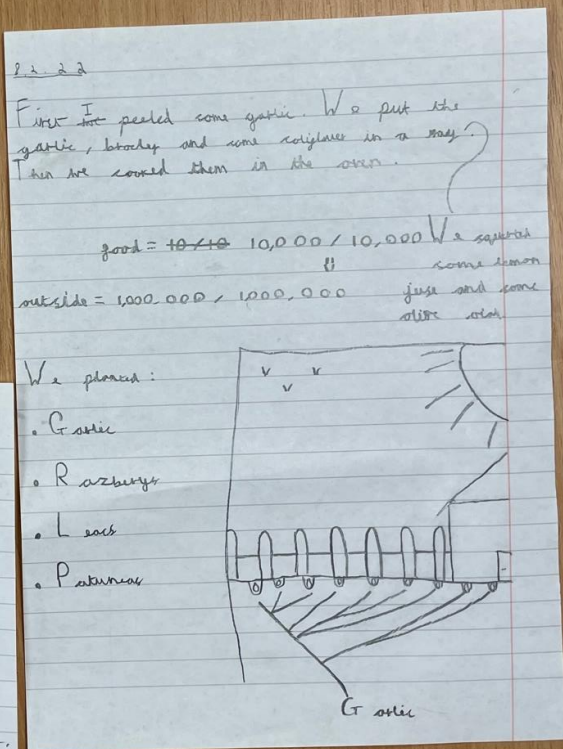 8.2.22
First I peeled some garlic. We put the
garlic, brocley and some coliflauer in a tray.
Then we cooked them in the oven.
food = 10/10 10,000 / 10,000 We sqeezed
some lemon
outside = 1,000,000 / 1,000,000 juse and some
olive
We planted:
. Garlic
. Razberys
. Leacs
. Patuneas
Garlic